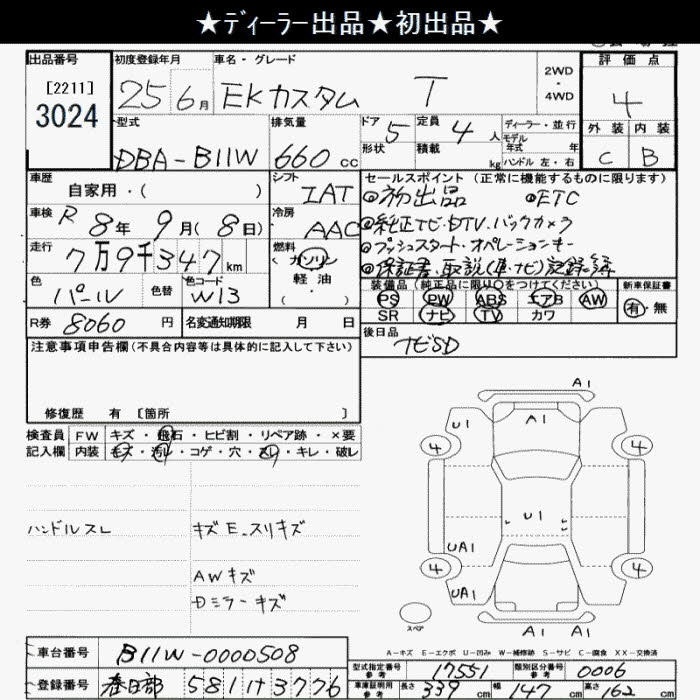 ★ディーラー出品★初出品★
出品番号 初度登録年月 車名・グレード 評価点
[2211] 2WD・4WD
3024 25 6月 EKカスタム T 4
型式 排気量 ドア 5 定員 4人 ディーラー・並行 外装 内装
モデル年式 年
DBA-B11W 660cc 形状 積載 kg ハンドル左・右 C B
車歴 シフト セールスポイント(正常に機能するものに限ります)
自家用・( ) IAT ◎初出品 ◎ETC
車検 R 8年 9月(8日) 冷房 AAC ◎純正TV・DTV・バックカメラ
走行 燃料 ◎プッシュスタート・オペレーションキー
7万9千347km (ガソリン ◎保証書・取説(車・ナビ)記録簿
色 色替 色コード 軽油 装備品(純正品に限り○をつけてください) 新車保証書
パール W13 ( ) PS PW ABS エアB AW 有・無
SR ナビ TV カワ
R券 8060円 名変通知期限 月 日 後日品
ナビSD
注意事項申告欄(不具合内容等は具体的に記入して下さい)
修復歴 有 [箇所 ]
検査員 FW キズ・飛石・ヒビ割・リペア跡・×要
記入欄 内装 キズ・汚レ・コゲ・穴・スリ・キレ・破レ
A1
U1 A1
4 4
ハンドルスレ キズE.スリキズ
U1
UA1
AWキズ
4 4
Dミラーキズ
UA1 A1
スペア A1 A1
A-キズ E-エクボ U-凹み W-補修跡 S-サビ C-腐食 XX-交換済
車台番号 B11W-0000508
型式指定番号 参考 17551 類別区分番号 参考 0006
登録番号 春日部 581 け 3776
車庫証明用 参考 長さ 339cm 幅 147cm 高さ 162cm